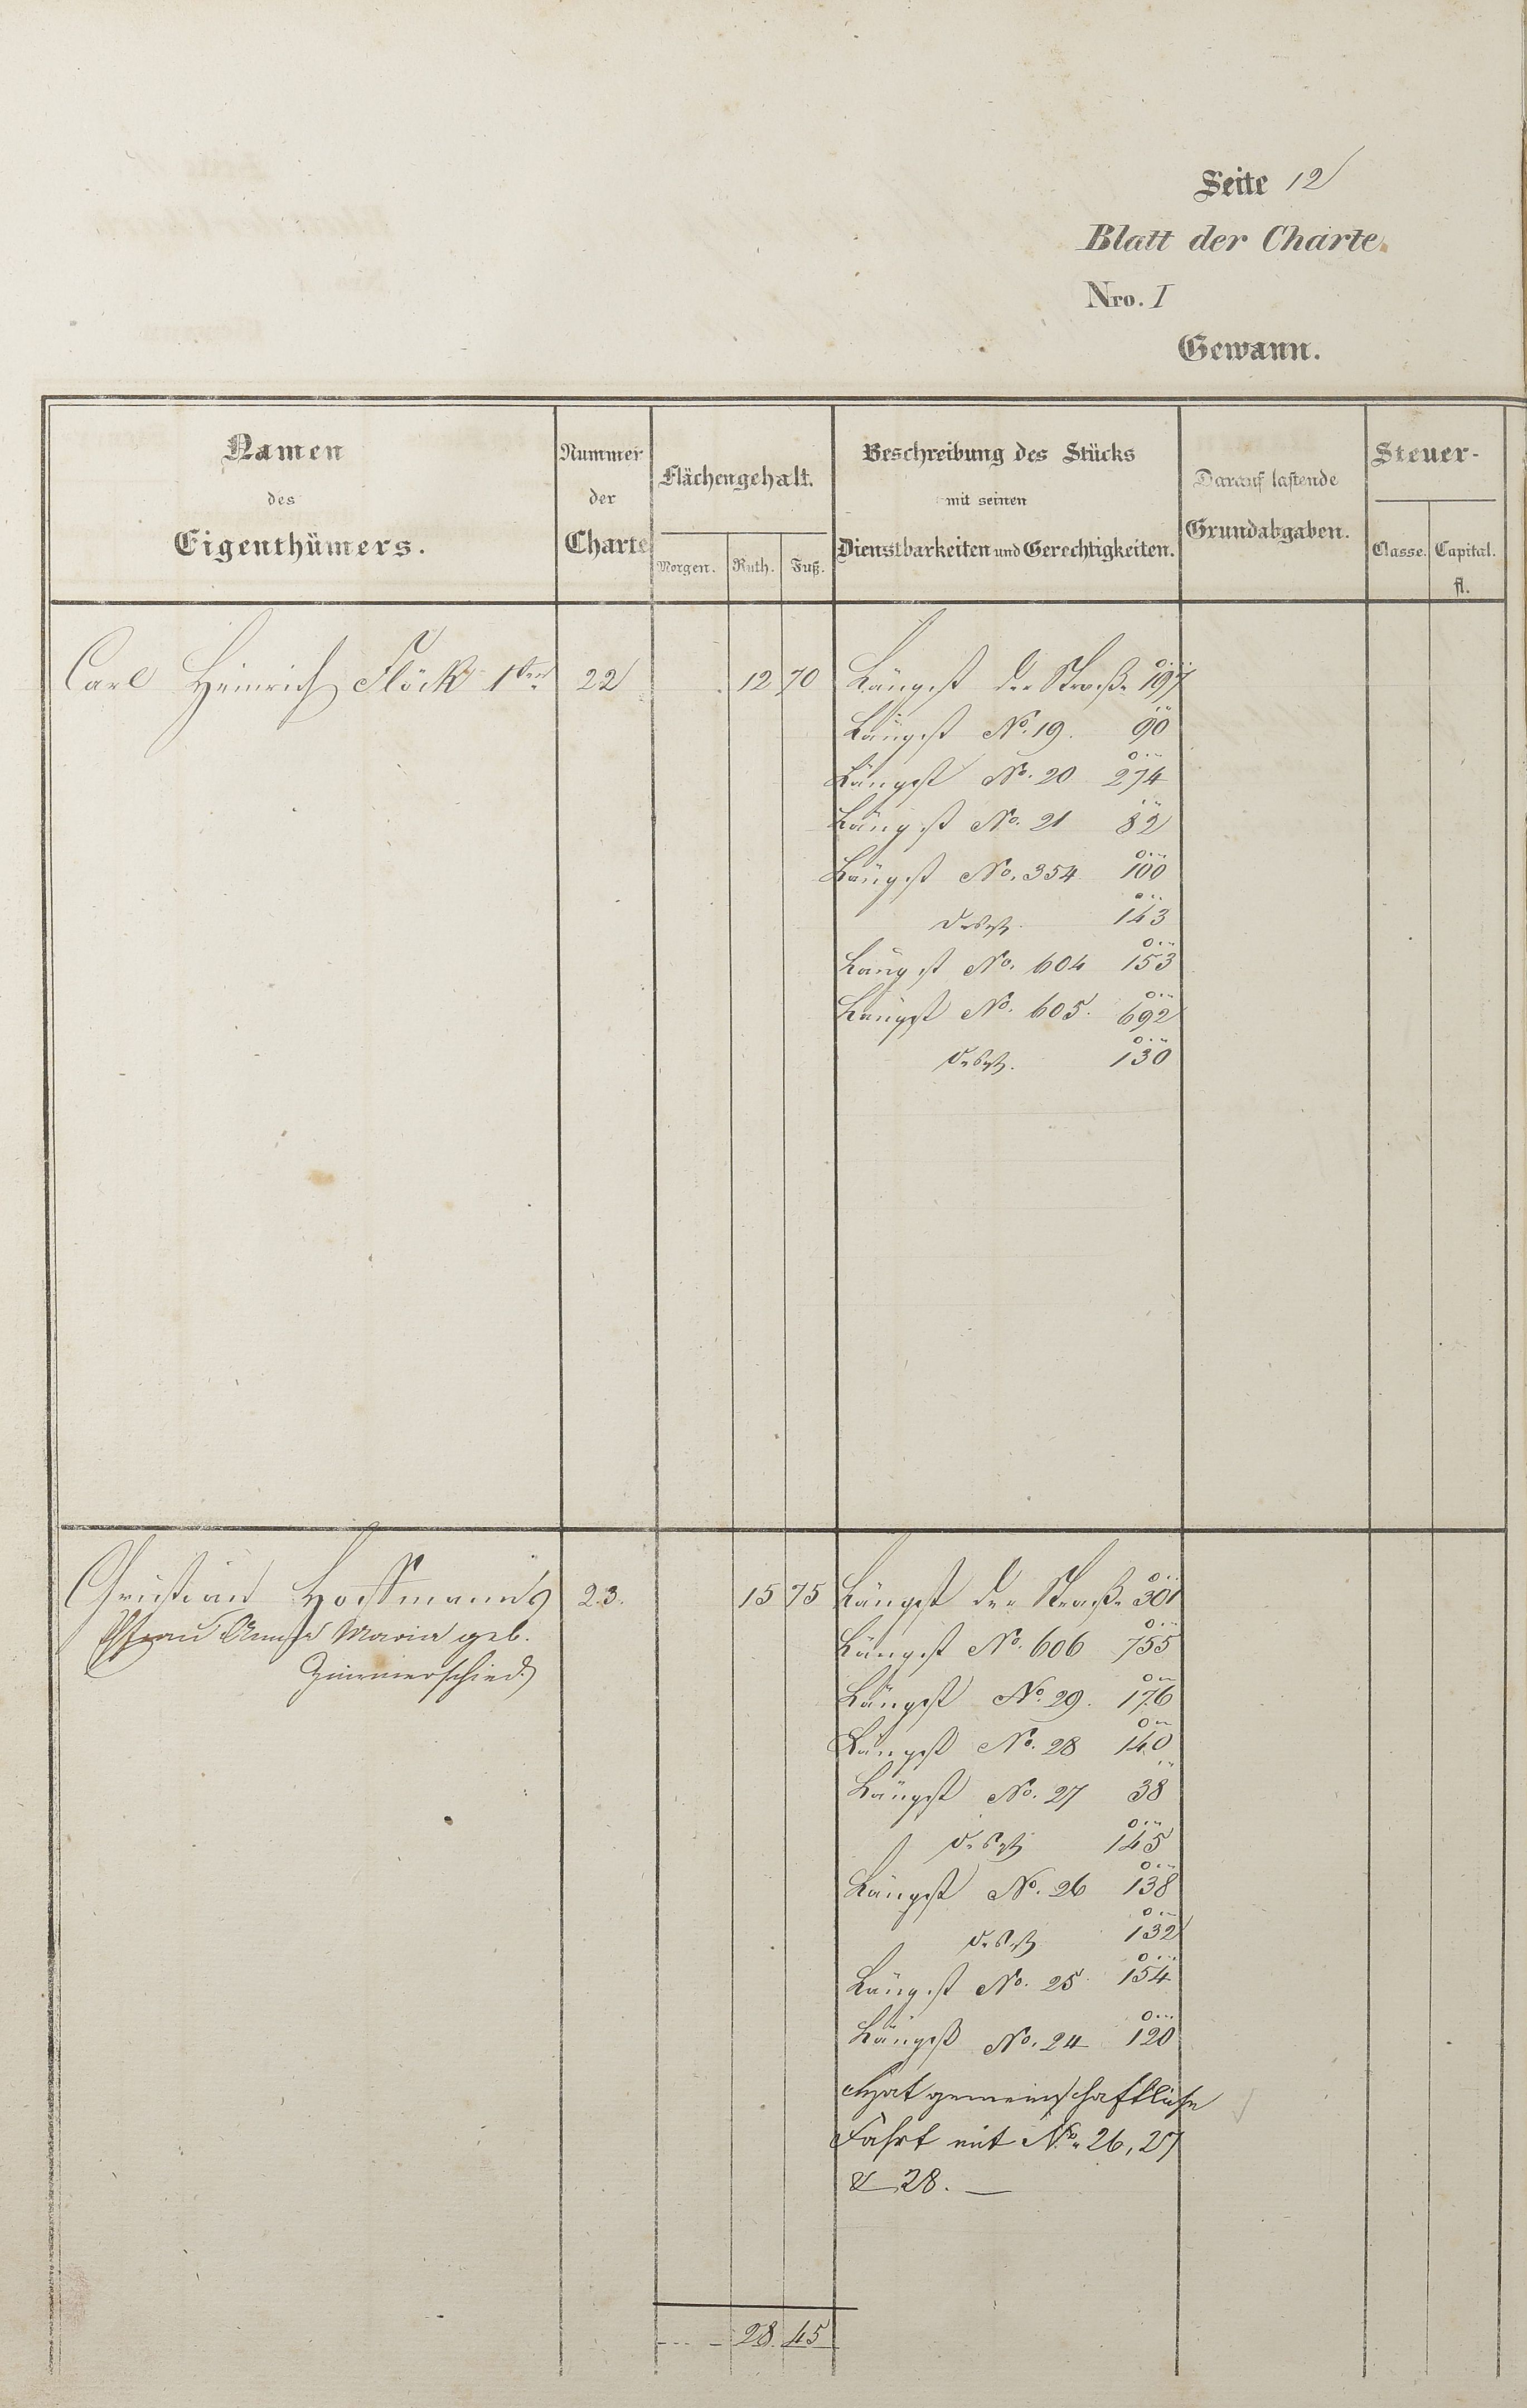 Seite 12
Blatt der Charte.
Nro. I
Gewann.
Namen des Eigenthümers.
Nummer der Charte
Flächengehalt.
Morgen. Ruth. Fuß.
Beschreibung des Stücks mit seinen Dienstbarkeiten und Gerechtigkeiten.
Darauf lastende Grundabgaben.
Steuer-
Classe. Capital. fl.
Carl Heinrich Flöck 1ter 22 12 70 Längst der Straße 197
Längst No. 19. 90
Längst No. 20 274
Längst No. 21 82
Längst No. 354 100
desgl. 143
Längst No. 604 153
Längst No. 605. 692
desgl. 130
Christian Hoffmann's 23. 15 75 Längst der Straße 301
Ehefrau Anna Maria geb. Längst No. 606 755
Zimmerschied. Längst No. 29. 176
Längst No. 28 140
Längst No. 27 38
desgl. 145
Längst No. 26 138
desgl. 132
Längst No. 25 154
Längst No. 24 120
Hat gemeinschaftliche
Fahrt mit No. 26, 27
& 28. —
28. 45